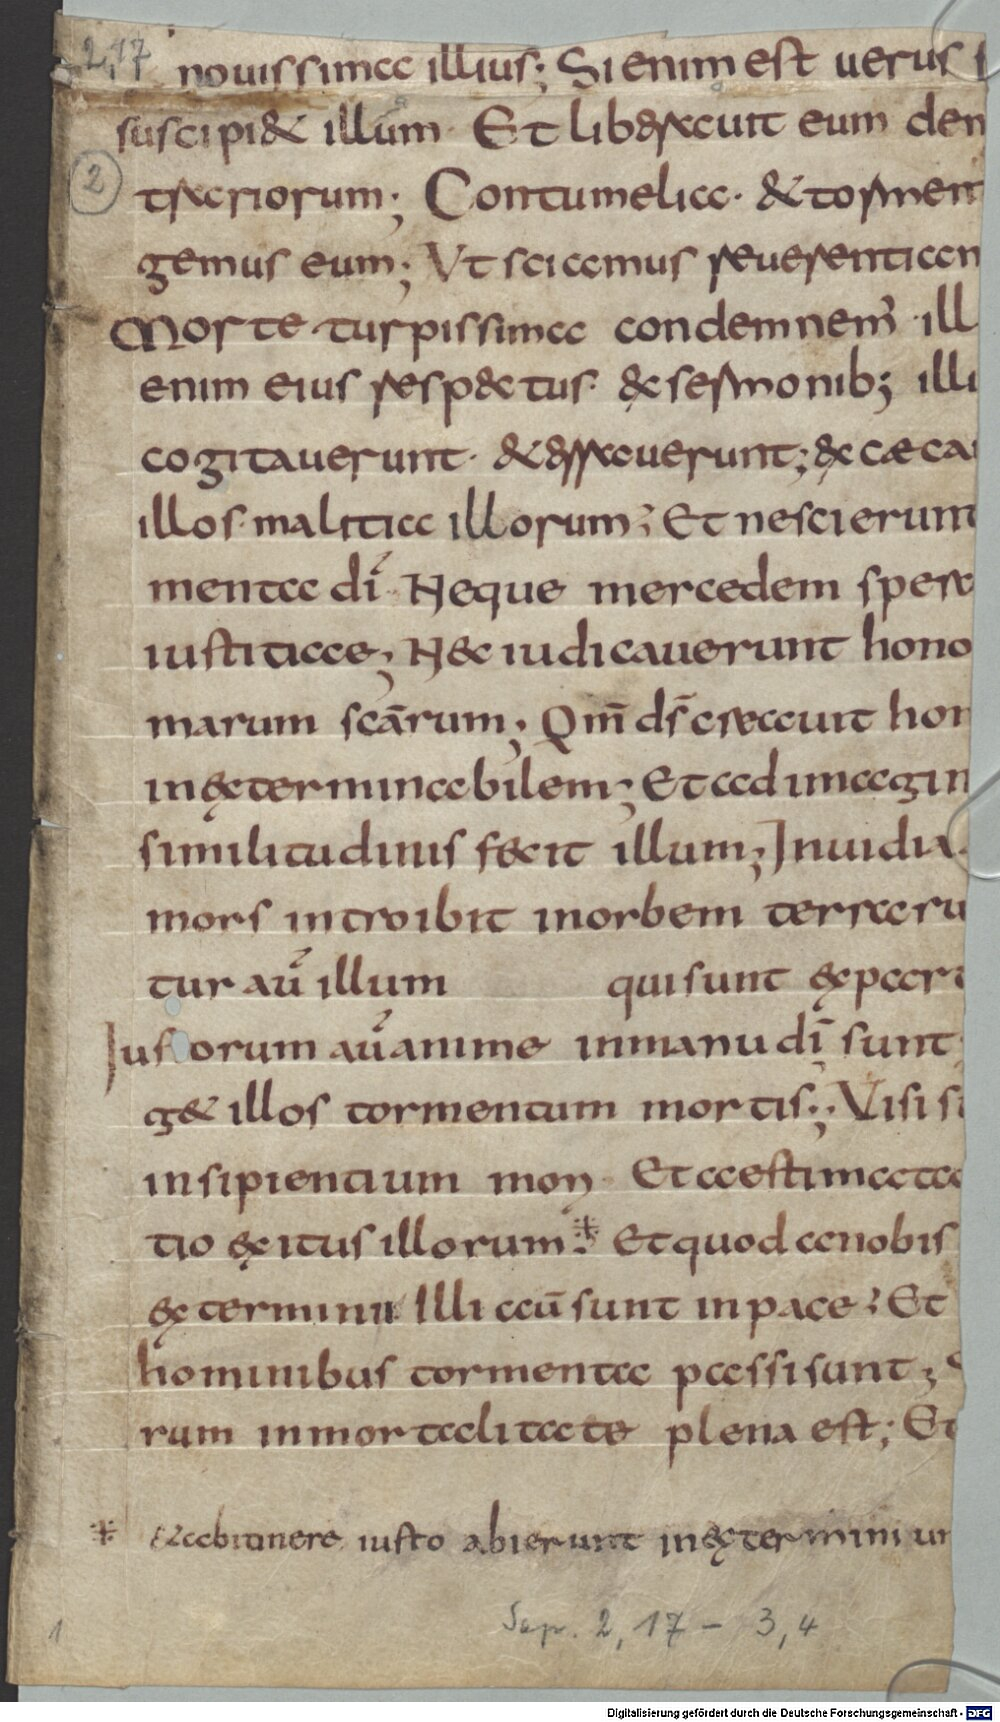 2,17
nouissima illius; Si enim est uerus
suscipi& illum· Et liberauit eum de m
2
trariorum; Contumelia· & tormen
gemus eum; Vt sciamus reuerentiam
Morte turpissima condemnem̄ ill
enim eius respectus· ex sermonib; illi
cogitauerunt· & errauerunt; excæca
illos· malitia illorum; Et nescierunt
menta dī· Neque mercedem spera
iustitiae; Nec iudicauerunt hono
marum scārum; Qm̄ ds̄ creauit hom
inexterminabilem; Et ad imagin
similitudinis fecit illum; Inuidia
mors introibit inorbem terraru
tur aū illum qui sunt expar
Iustorum aū anime inmanu dī sunt
g& illos tormentum mortis; Visi s
insipientium mori· Et aestimata
tio exitus illorum; * Et quod anobis
exterminii Illi aū sunt inpace; Et
hominibus tormenta passi sunt;
rum inmortalitate plena est; Et
* & abitinere iusto abierunt inexterminium
1
Sap. 2,17 – 3,4
Digitalisierung gefördert durch die Deutsche Forschungsgemeinschaft · DFG